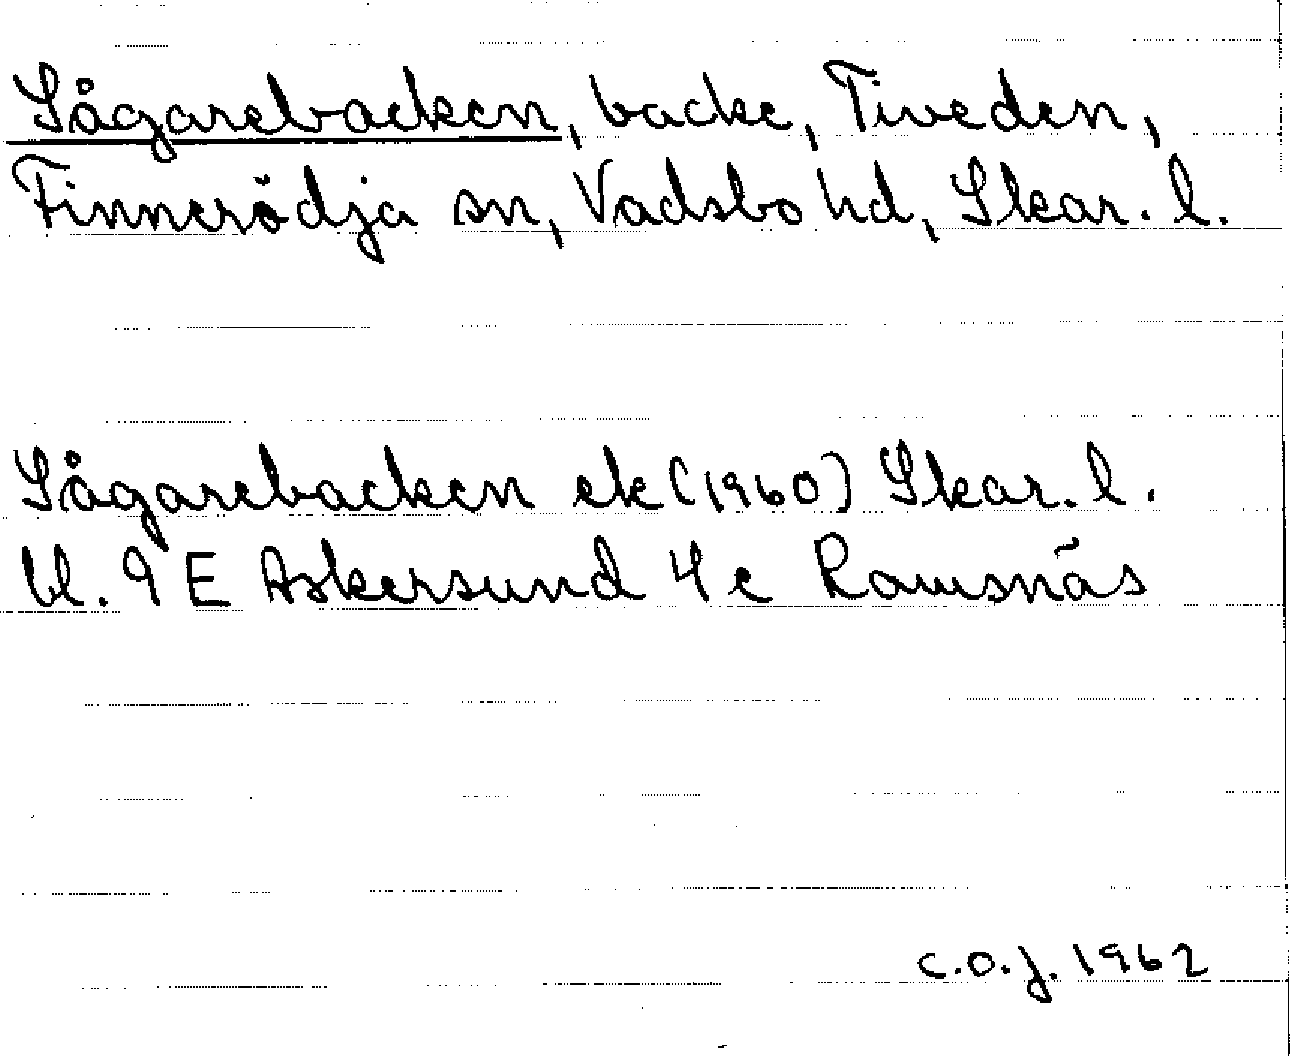 Sågarebacken, backe, Tiveden,
Finnerödja sn, Vadsbo hd, Skar. l.
Sågarebacken ek (1960) Skar. l.
bl. 9 E Askersund 4 c Ramsnäs
C.O.J. 1962